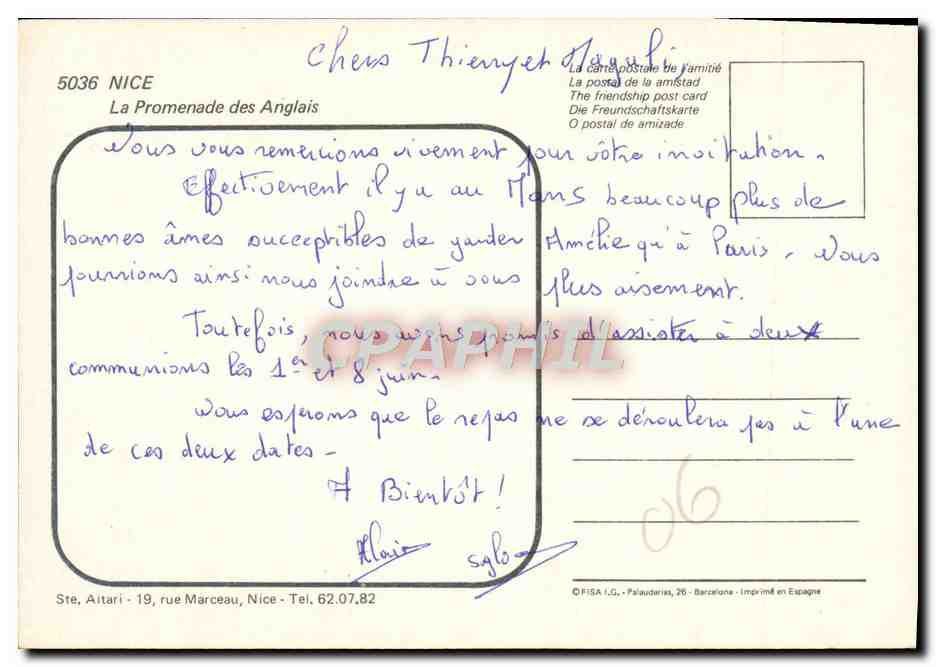 Chers Thierry et Magali,
5036 NICE
La Promenade des Anglais
La carte postale de l'amitié
La postal de la amistad
The friendship post card
Die Freundschaftskarte
O postal de amizade
Nous vous remercions vivement pour vôtre invitation.
Effectivement il y a au Mans beaucoup plus de
bonnes âmes succeptibles de garder Amélie qu'à Paris. Nous
pourrions ainsi nous joindre à vous plus aisement.
Toutefois, nous avons promis d'assister à deux
communions les 1er et 8 juin.
Nous esperons que le repas ne se déroulera pas à l'une
de ces deux dates -
A Bientôt !
Alain
CPAPHIL
06
Ste. Aitari - 19, rue Marceau, Nice - Tel. 62.07.82
© FISA I.G. - Palaudarias, 26 - Barcelona - Imprimé en Espagne